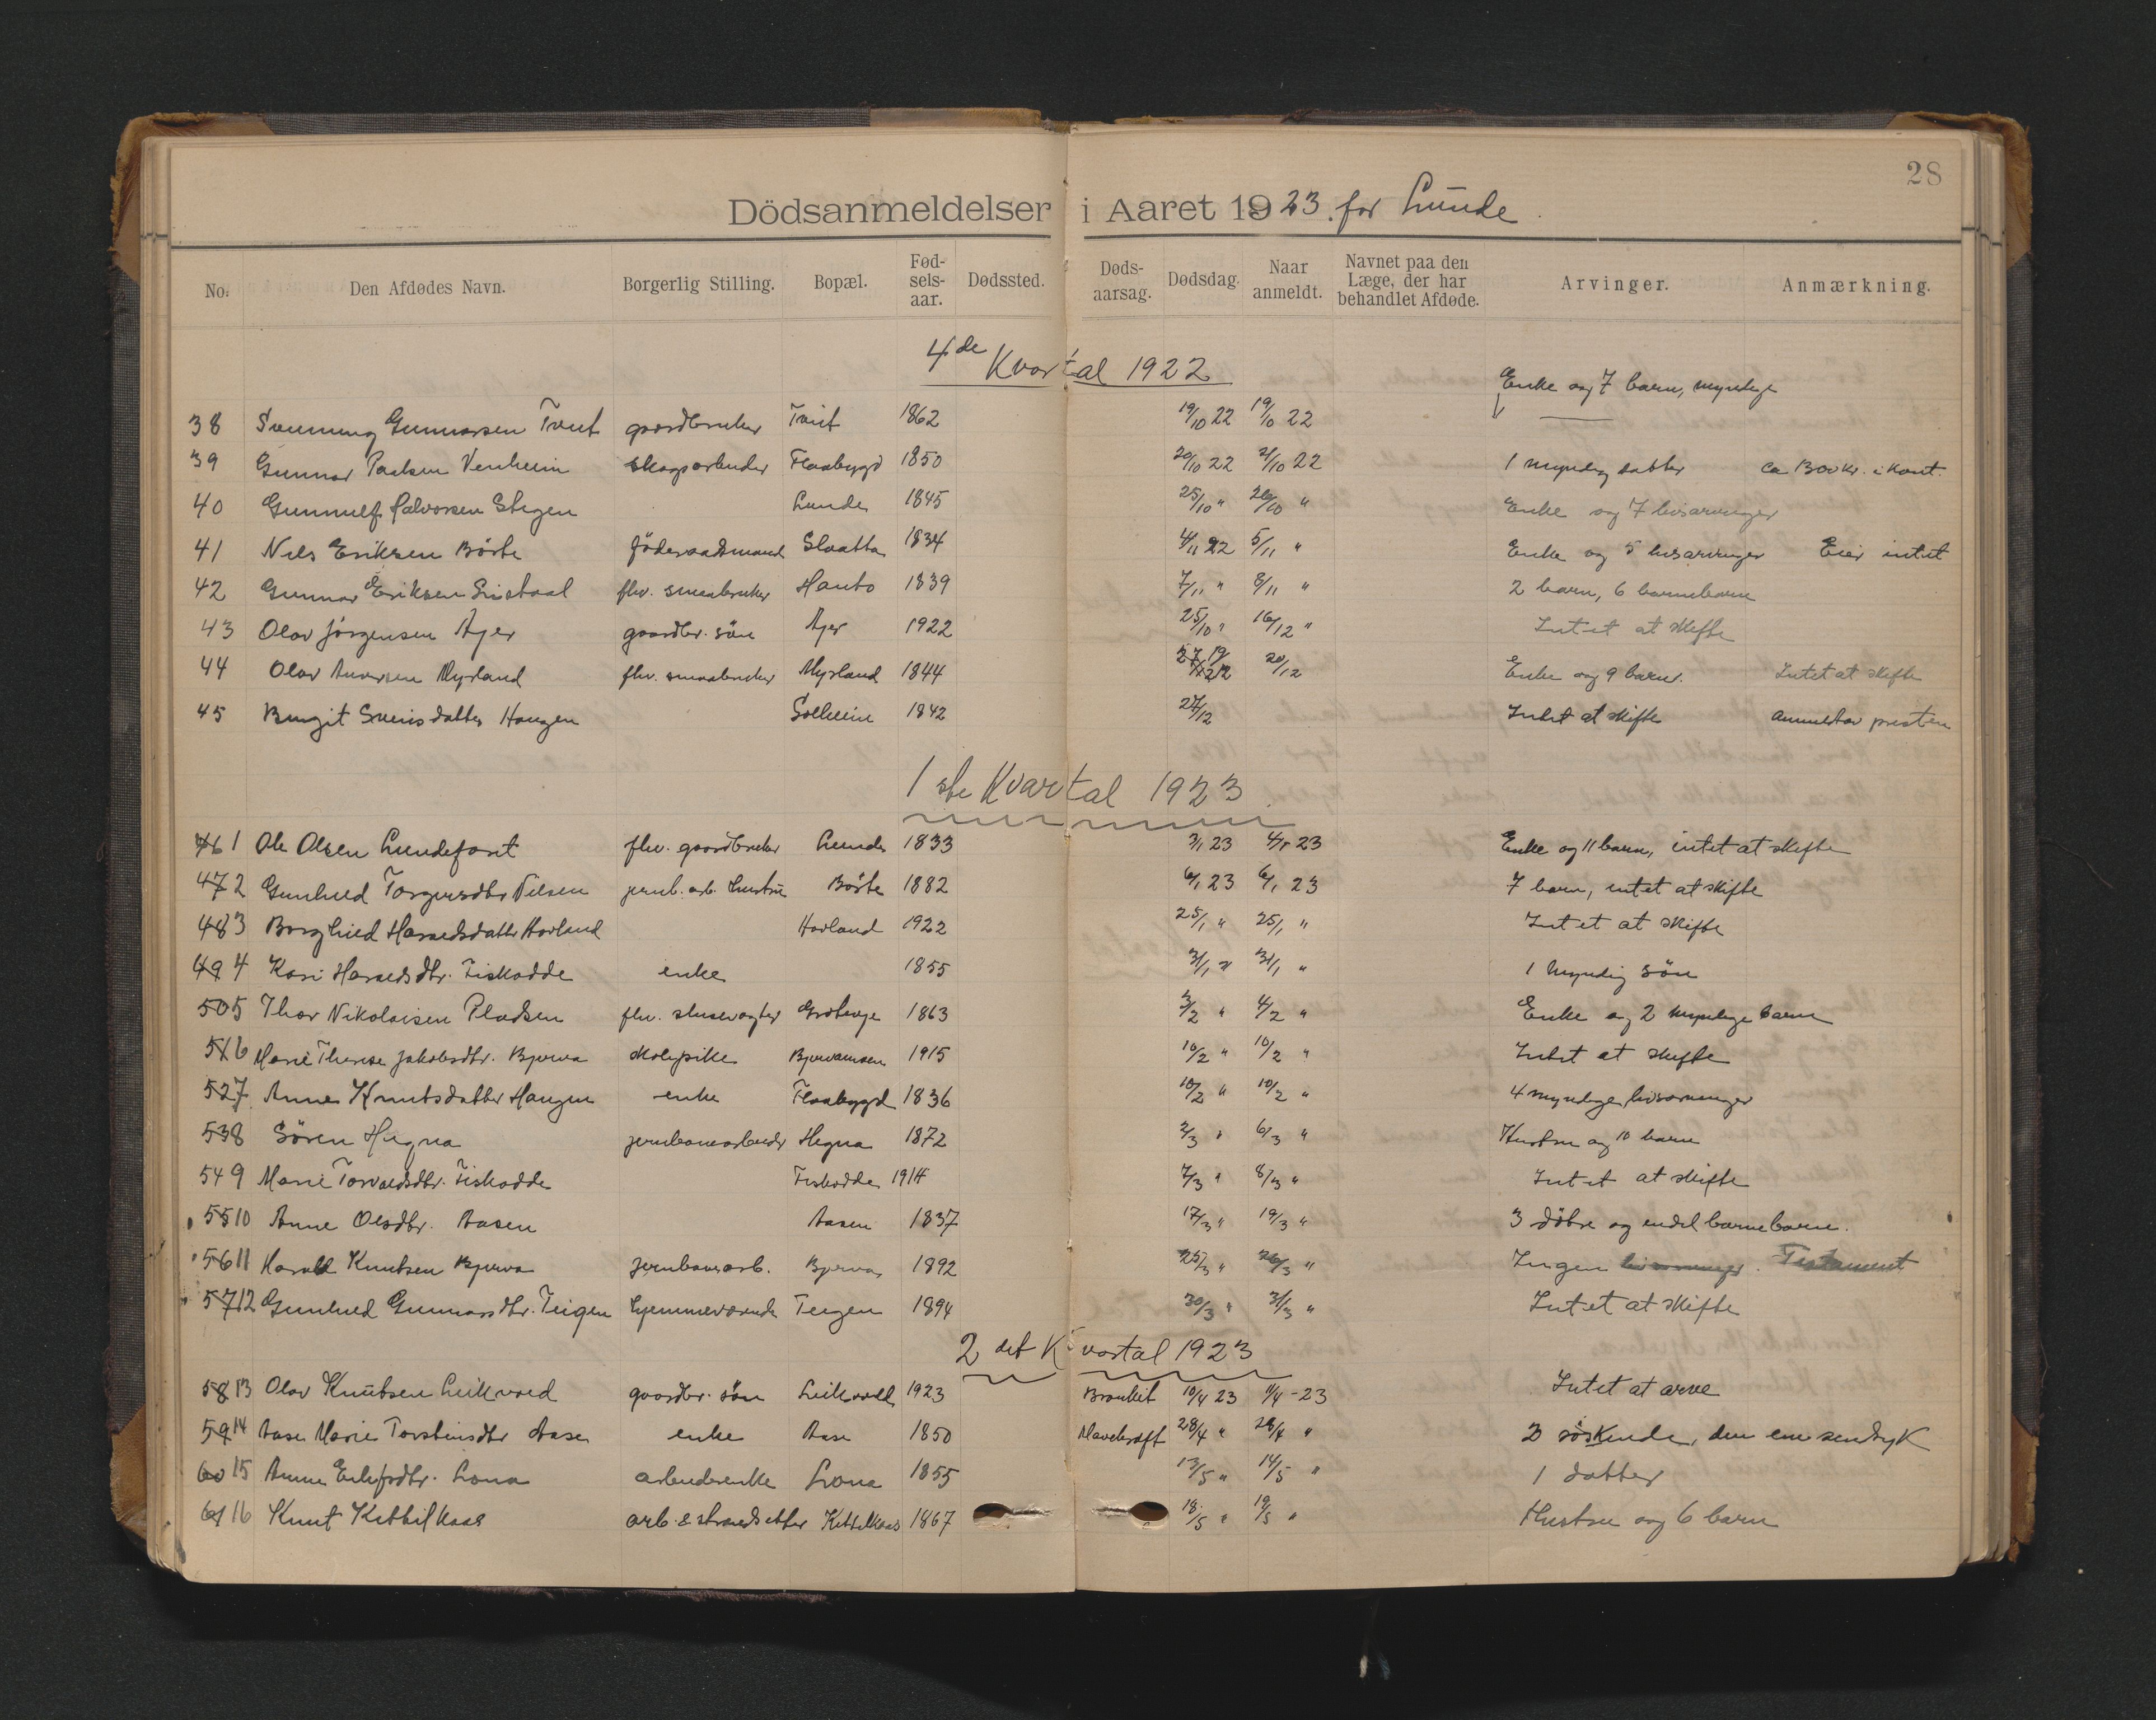 28
Dödsanmeldelser i Aaret 1923. for Lunde
No. Den Afdødes Navn. Borgerlig Stilling. Bopæl. Fød-sels-aar. Dødssted. Døds-aarsag. Dødsdag. Naar anmeldt. Navnet paa den Læge, der har behandlet Afdøde. Arvinger. Anmærkning.
4de Kvartal 1922
Enke og 7 barn, myndige
38 Svenning Gunnarsen Tveit gaardbruker Tveit 1862 19/10 22 19/10 22
39 Gunnar Paulsen Venheim skogsarbeider Flaabygd 1850 20/10 22 21/10 22 1 myndig datter ca 1300 kr. i kont.
40 Gunnulf Halvorsen Stegen Lunde 1845 25/10 " 26/10 " Enke og 7 livsarvinger
41 Nils Eriksen Börte föderaadsmand Slaatta 1834 4/11 22 5/11 " Enke og 5 livsarvinger Eier intet
42 Gunnar Eriksen flv. smaabruker Hanto 1839 7/11 " 8/11 " 2 barn, 6 barnebarn
43 Olav Jörgensen Ajer gaardbr. sön Ajer 1922 25/10 " 16/12 " Intet at skifte
44 Olav Myrland flv. smaabruker Myrland 1844 20/12 Enke og 9 barn. Intet at skifte
45 Bergit Sveinsdatter Haugen Solheim 1842 27/12 Intet at skifte anmeldt av presten
1ste Kvartal 1923
46 1 Ole Olsen Lundefaret flv. gaardbruker Lunde 1833 3/1 23 4/1 23 Enke og 11 barn, intet at skifte
47 2 Gunhild Torgersdtr Nilsen jernb. arb. hustru Börte 1882 6/1 23 6/1 23 7 barn, intet at skifte
48 3 Borghild Haraldsdatter Hovland Hovland 1922 25/1 " 25/1 " Intet at skifte
49 4 Kari Haraldsdtr. Fiskodde enke 1855 31/1 " 31/1 " 1 myndig sön
50 5 Thor Nikolaisen Pladsen flv. slusevogter Grotvge 1863 3/2 " 4/2 " Enke og 2 myndige barn
51 6 Marie Therese Jakobsdtr. Bjerva skolepike Bjervamoen 1915 10/2 " 10/2 " Intet at skifte
52 7 Anne Knutsdatter Haugen enke Flaabygd 1836 10/2 " 10/2 " 4 myndige livsarvinger
53 8 Sören Hegna jernbanearbeider Hegna 1872 2/3 " 6/3 " Hustru og 10 barn
54 9 Marie Torvaldsdtr. Fiskodde Fiskodde 1914 7/3 " 8/3 " Intet at skifte
55 10 Anne Olsdtr. Aasen Aasen 1837 17/3 " 19/3 " 3 döttre og endel barnebarn.
56 11 Harald Knutsen Bjerva jernbanearb. Bjerva 1892 25/3 " 26/3 " Ingen livsarvinger. Testament
57 12 Gunhild Gunnarsdtr. Teigen hjemmeværende Teigen 1894 30/3 " 31/3 " Intet at skifte
2det Kvartal 1923
58 13 Olav Knutsen Leikvold gaardbr. sön Leikvold 1923 Bronkit 10/4 23 11/4 - 23 Intet at arve
59 14 Aase Marie Torsteinsdtr Aase enke Aase 1850 Mavekræft 28/4 " 28/4 " 3 söskende, den ene sendsyk
60 15 Anne Eilefsdtr. Lona arbeiderenke Lona 1855 13/5 " 14/5 " 1 datter
61 16 Knut Kittilkaas arb. & strandsitter Kittilkaas 1867 18/5 " 19/5 " Hustru og 6 barn